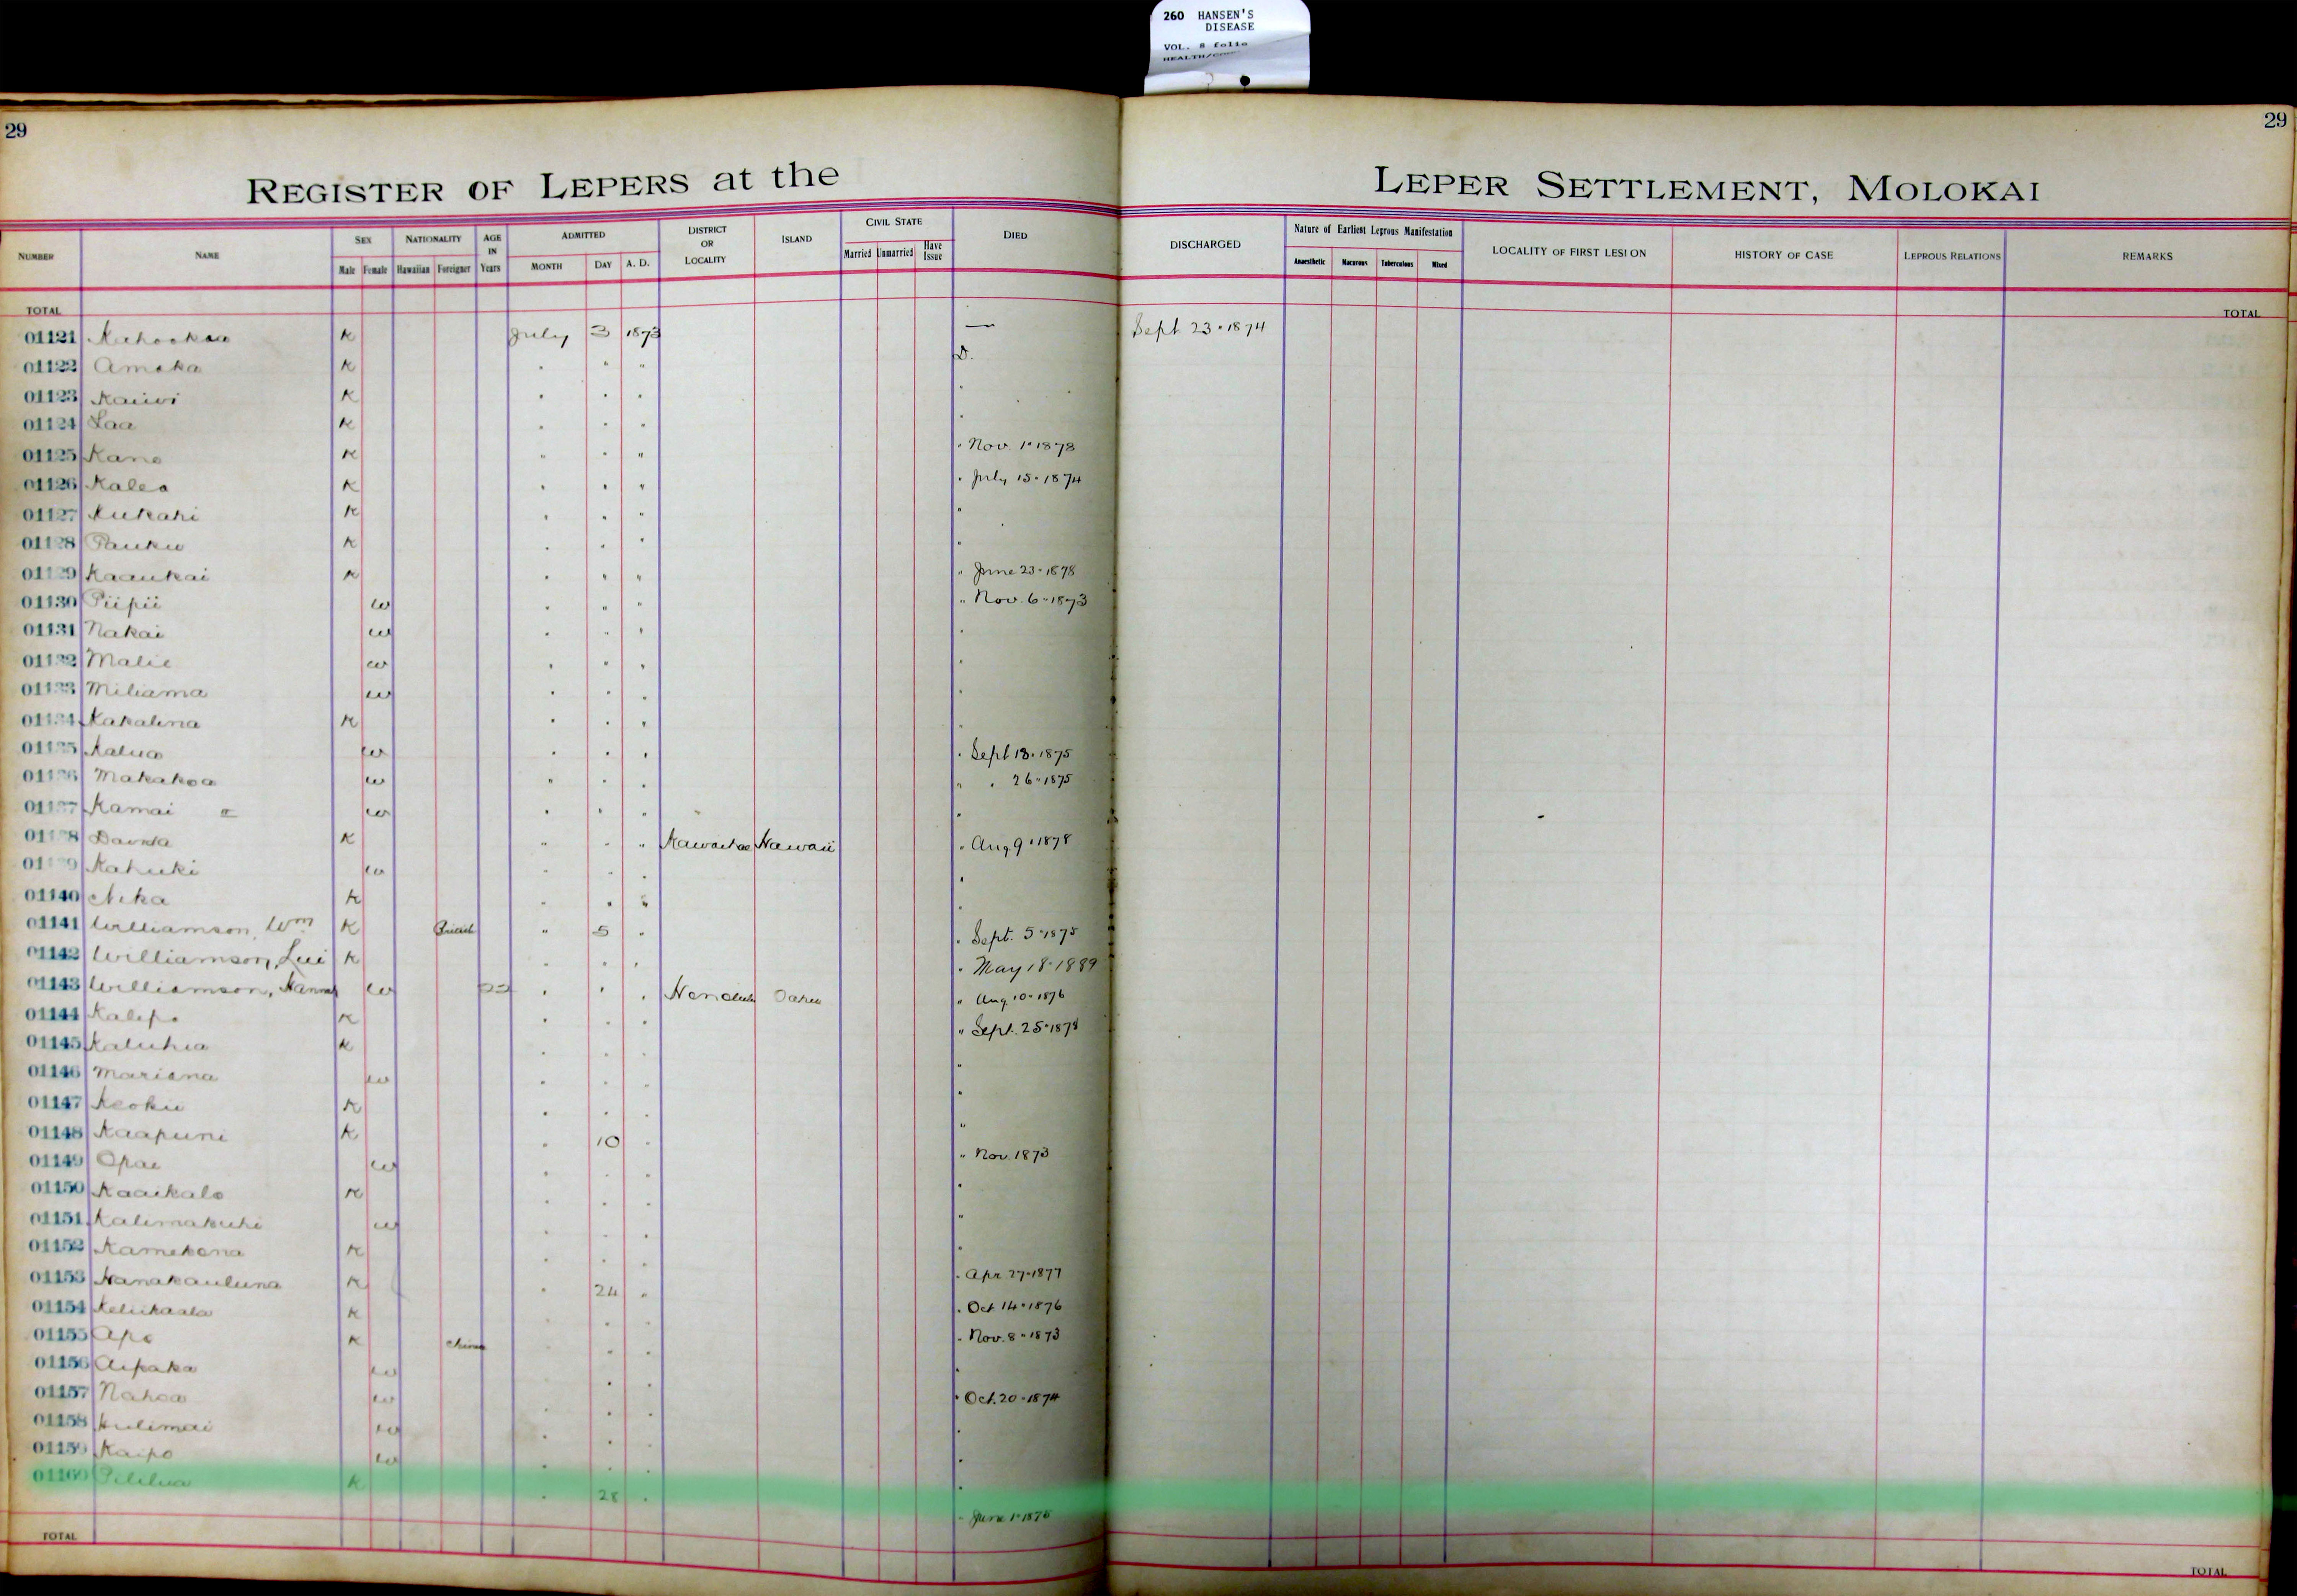 260 HANSEN'S
DISEASE
VOL. 8 folio
29
29
REGISTER OF LEPERS at the LEPER SETTLEMENT, MOLOKAI
NUMBER NAME SEX Male Female NATIONALITY Hawaiian Foreigner AGE IN Years ADMITTED MONTH DAY A. D. DISTRICT OR LOCALITY ISLAND CIVIL STATE Married Unmarried Have Issue DIED DISCHARGED Nature of Earliest Leprous Manifestation Anaesthetic Macurous Tuberculous Mixed LOCALITY OF FIRST LESION HISTORY OF CASE LEPROUS RELATIONS REMARKS
TOTAL TOTAL
01121 K July 3 1873 — Sept 23 " 1874
01122 Amaka K " " " D.
01123 Kaiwi K " " " "
01124 Laa K " " " "
01125 Kane K " " " " Nov. 1 " 1878
01126 Kalea K " " " " July 15 " 1874
01127 Kukahi K " " " "
01128 Pauku K " " " "
01129 Kaaukai K " " " " June 23 " 1878
01130 Piipii W " " " " Nov. 6 " 1873
01131 Nakai W " " " "
01132 Malie W " " " "
01133 Miliama W " " " "
01134 Kakalina K " " " "
01135 Kalua W " " " " Sept 18 " 1875
01136 Makakoa W " " " " " 26 " 1875
01137 Kamai W " " " "
01138 K " " " Kawaihae Hawaii " Aug 9 " 1878
01139 Kahuki W " " " "
01140 Nika K " " " "
01141 Williamson, Wm K British " 5 " " Sept. 5 " 1875
01142 Williamson, Lui K " " " " May 18 " 1889
01143 Williamson, Hannah W " " " Honolulu Oahu " Aug. 10 " 1876
01144 K " " " " Sept. 25 " 1878
01145 Kaluhia K " " " "
01146 Mariana W " " " "
01147 Keoku K " " " "
01148 Kaapuni K " 10 " "
01149 Opae W " " " " Nov. 1873
01150 Kaaikalo K " " " "
01151 Kalimakuhi W " " " "
01152 Kamekona K " " " "
01153 Nanakauluna K " 24 " " Apr 27 " 1877
01154 Keliikaala K " " " " Oct 14 " 1876
01155 Apo K China " " " " Nov. 8 " 1873
01156 Aipaka W " " " "
01157 Nahoa W " " " " Oct. 20 " 1874
01158 Kulimai W " " " "
01159 Kaipo W " " " "
01160 Pililua K " 28 " " June 1 " 1875
TOTAL TOTAL